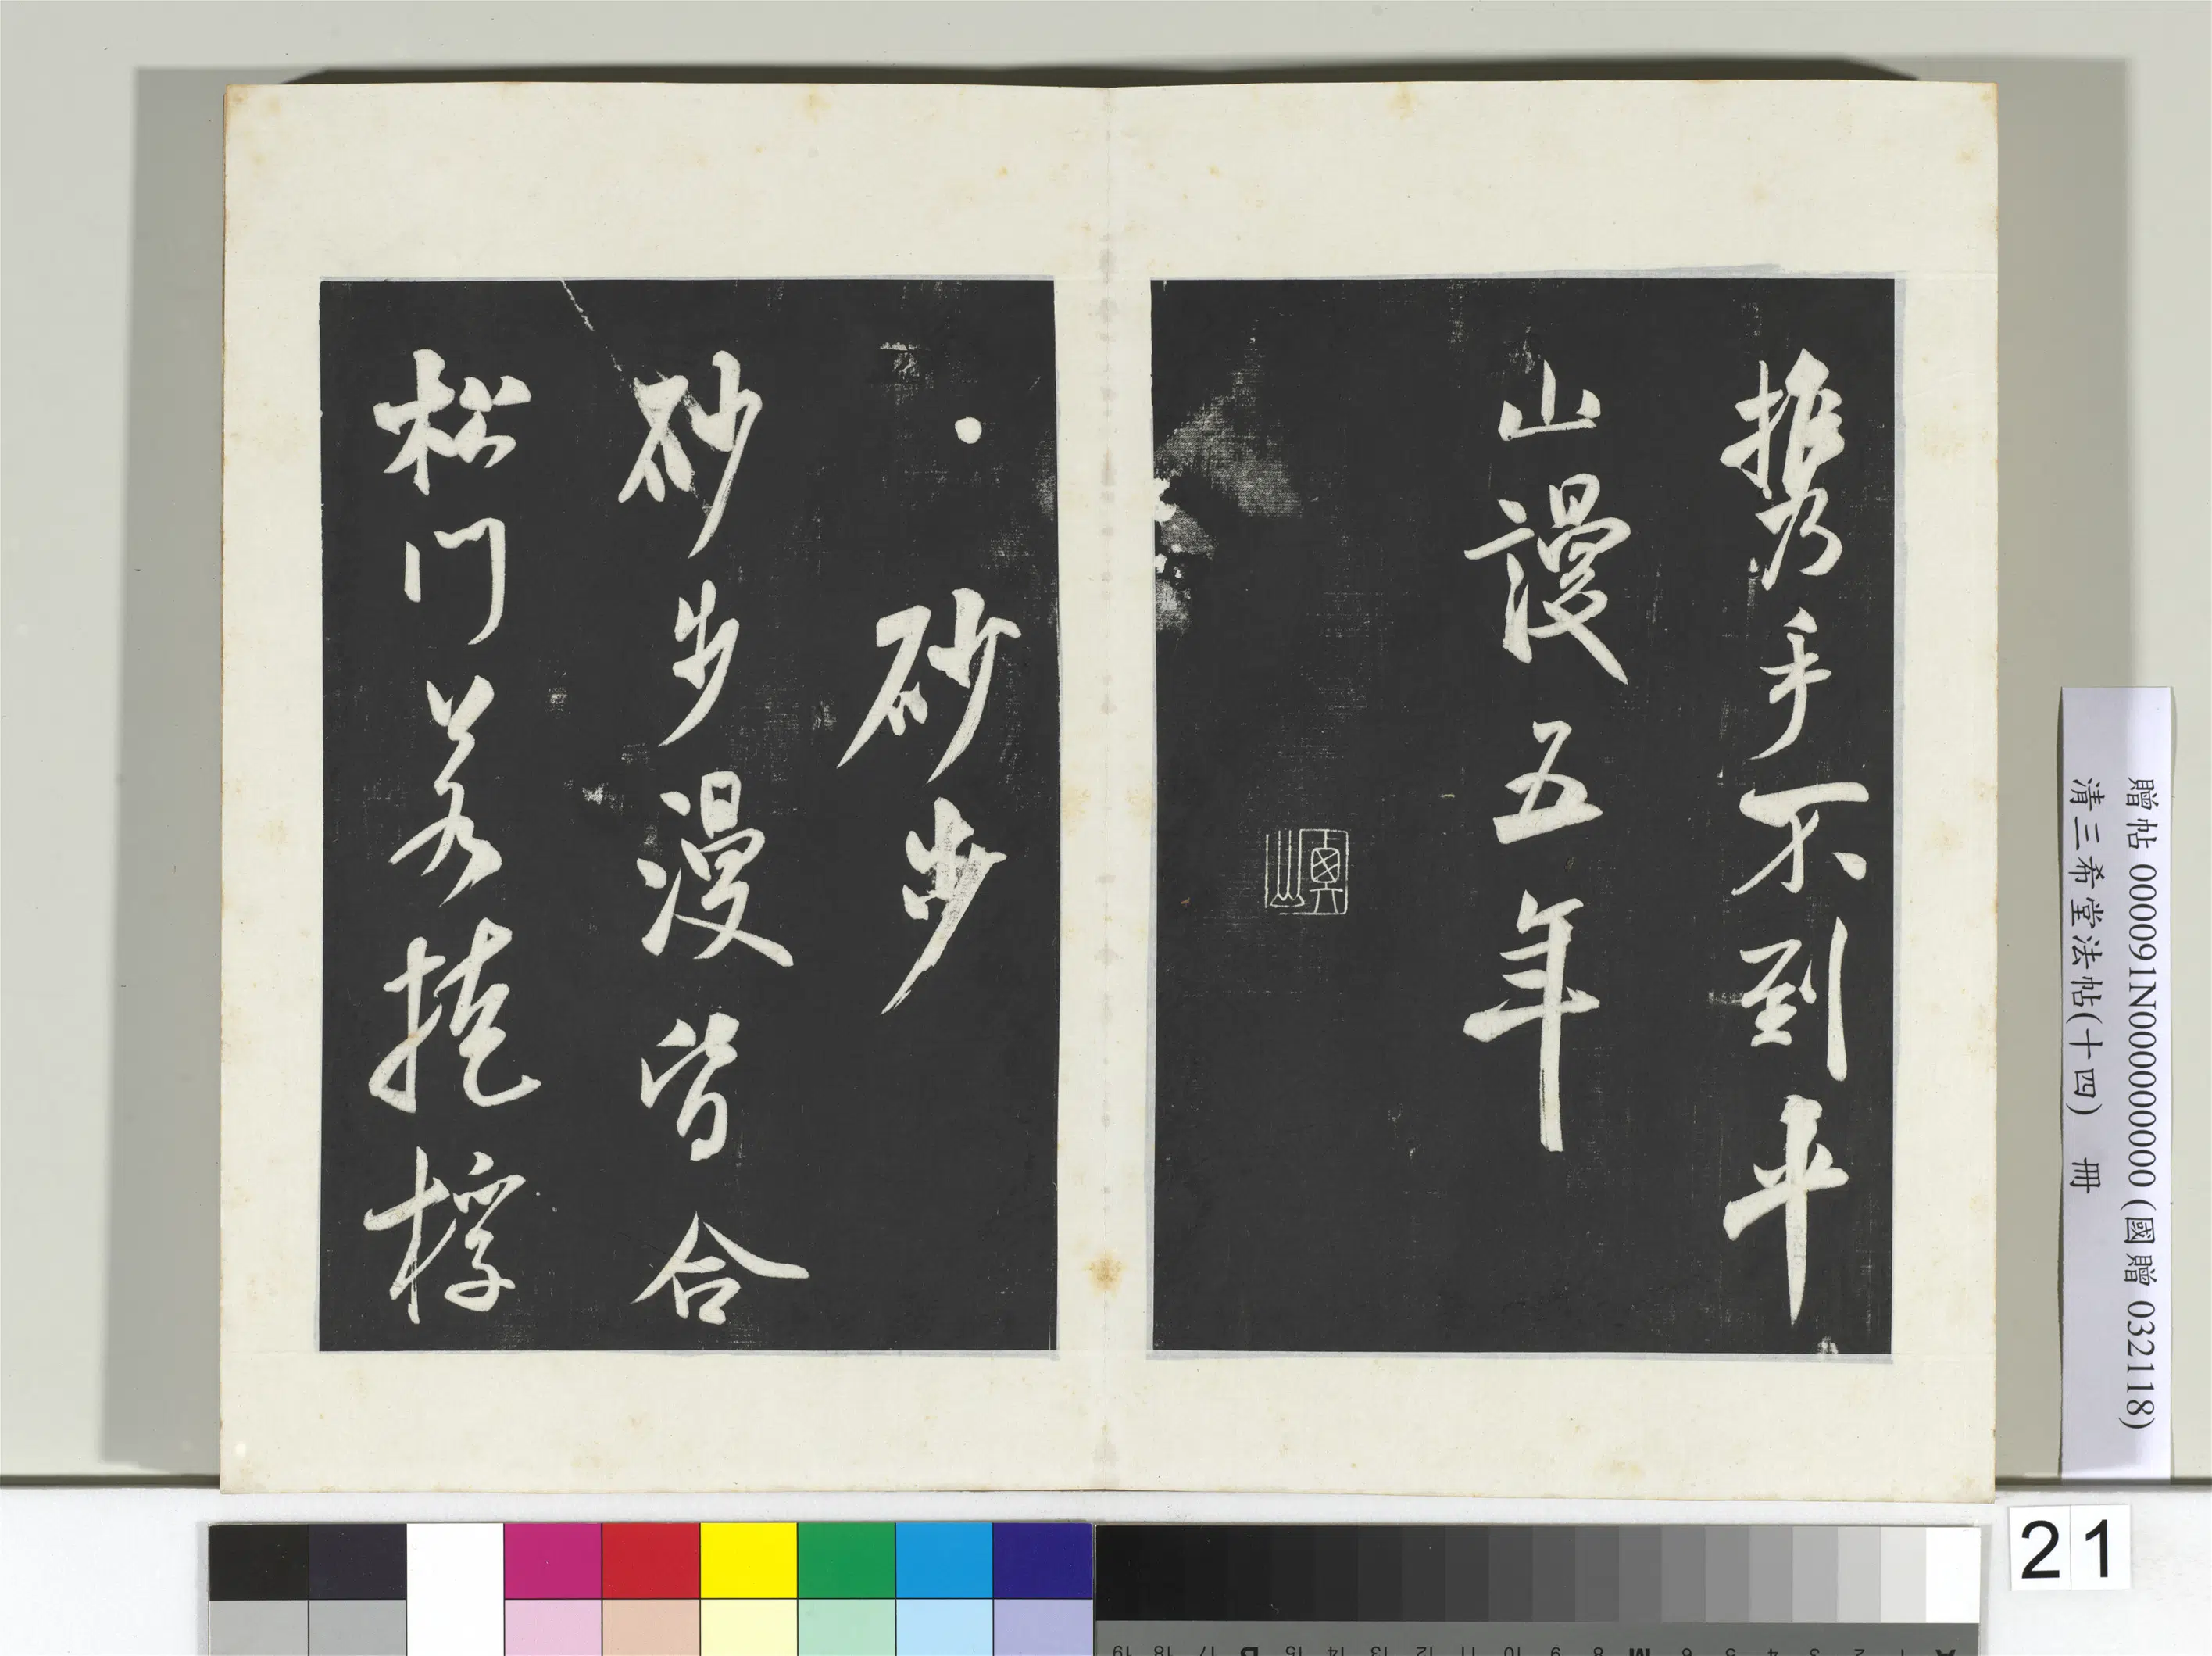 攜手不到平
山謾五年
砂步
砂步漫皆合
松門若掩桴
贈帖 000091N000000000 (國贈 032118)
清三希堂法帖(十四) 冊
21